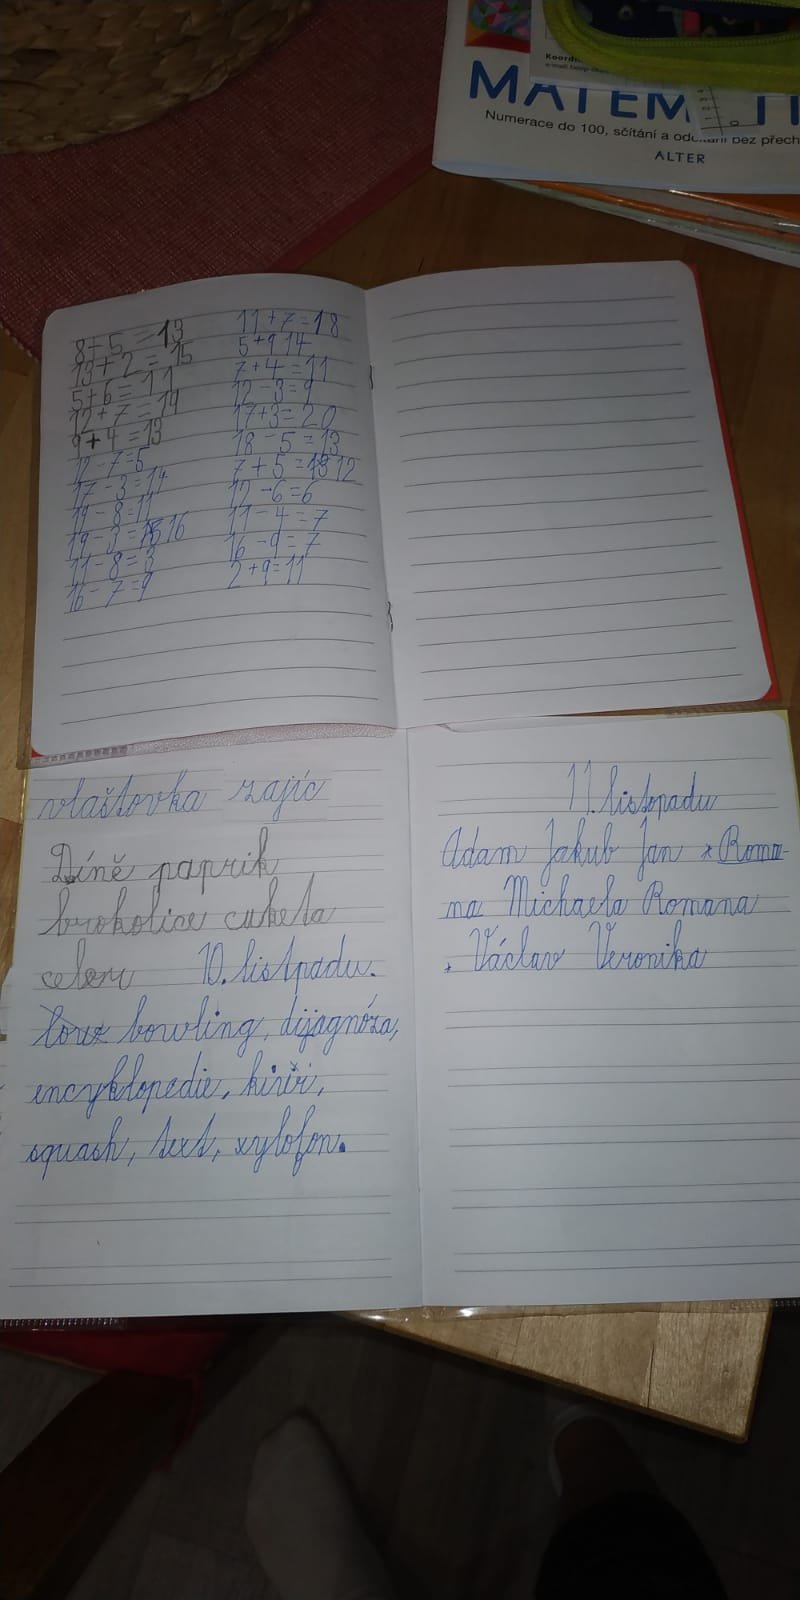 Koordi
MATEM TI
Numerace do 100, sčítání a odčítání bez přech
ALTER
8+5 =13
13+2 =15
5+6=11
12+7=19
9+4=13
12-7=5
17-3=14
19-8=11
19-3= 16
11-8=3
16-7=9
11+7=18
5+9 14
7+4=11
12-3=9
17+3=20
18-5=13
7+5= 12
12-6=6
11-4=7
16-9=7
2+9=11
vlaštovka zajíc
Díně paprik
brokolice cuketa
celer 10. listpadu.
bowling, dijagnóza,
encyklopedie, kivi,
squash, text, xylofon.
11. listopadu
Adam Jakub Jan * Roma-
na Michaela Romana
. Václav Veronika